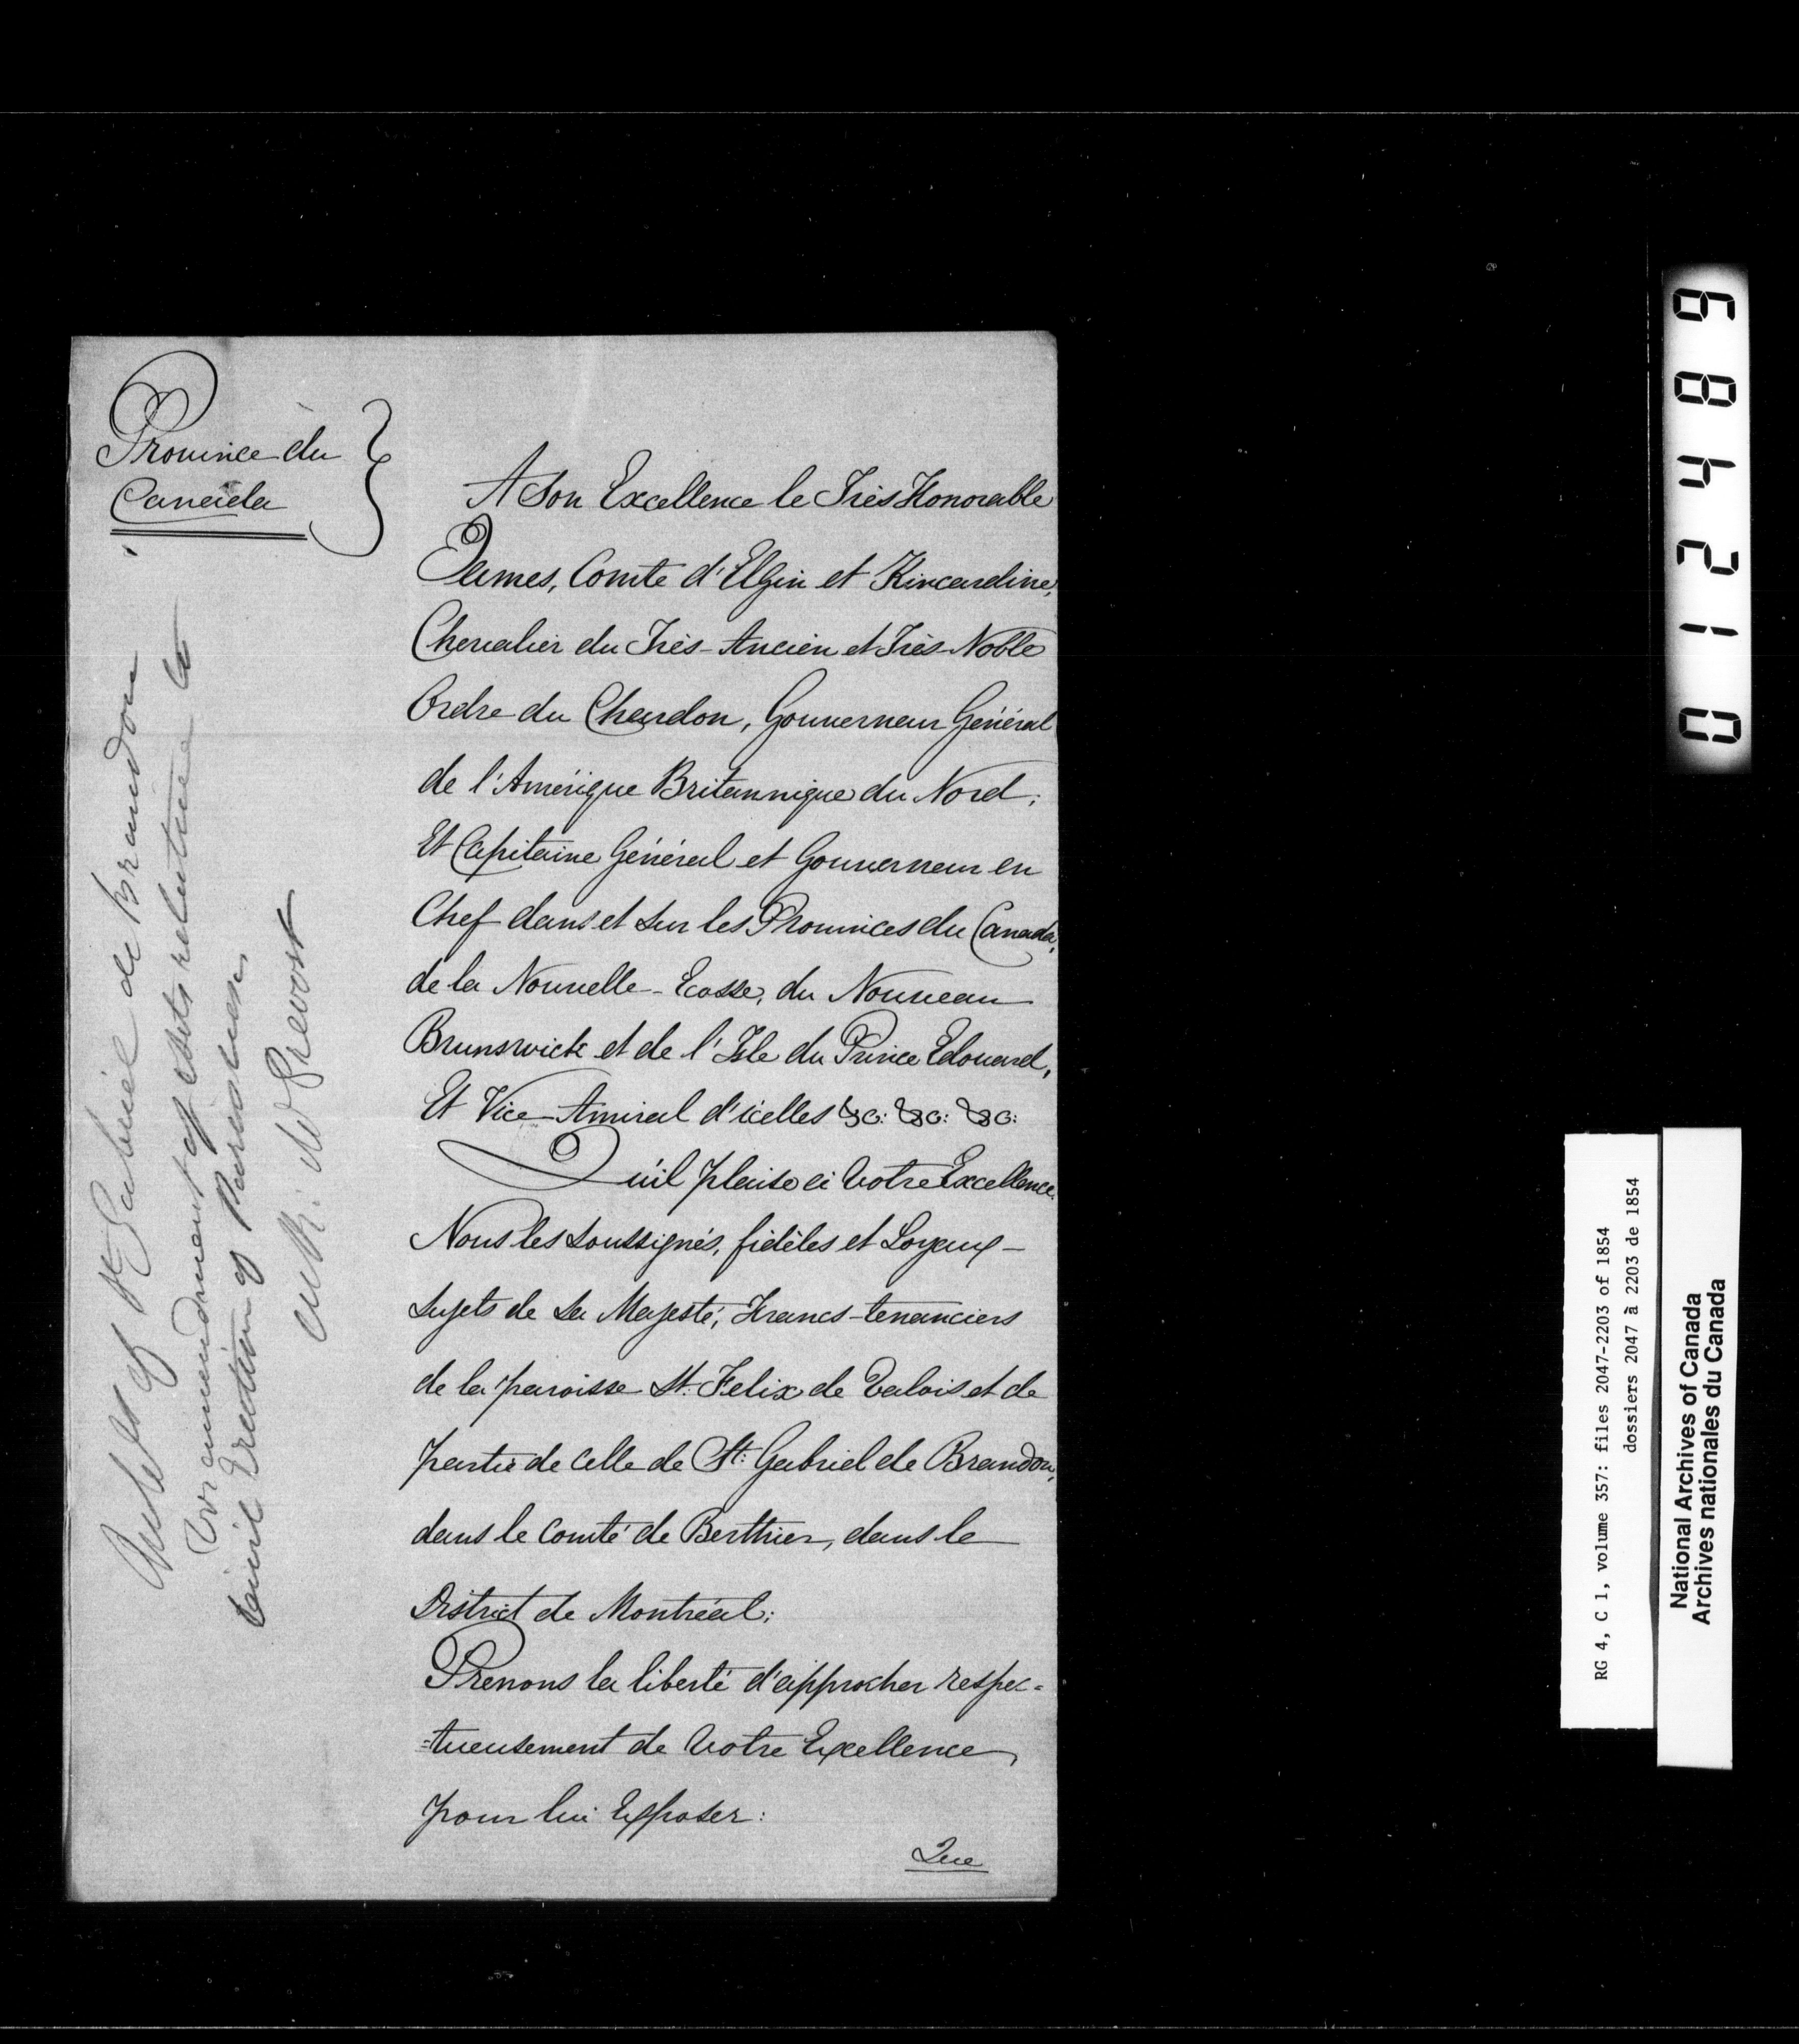 Province du
Canada
A Son Excellence le Très Honorable
James, Comte d'Elgin et Kincardine,
Chevalier du Très-Ancien et Très-Noble
Ordre du Chardon, Gouverneur Général
de l'Amérique Britannique du Nord;
Et Capitaine Général et Gouverneur en
Chef dans et sur les Provinces du Canada,
de la Nouvelle-Ecosse, du Nouveau
Brunswick et de l'Isle du Prince Edouard,
Et Vice-Amiral d'icelles &c: &c: &c:
Qu'il plaise à Votre Excellence.
Nous les soussignés, fidèles et Loyaux
sujets de Sa Majesté, Francs-tenanciers
de la paroisse St. Felix de Valois et de
partie de celle de St: Gabriel de Brandon,
dans le Comté de Berthier, dans le
District de Montréal;
Prenons la liberté d'approcher respec=
=tueusement de Votre Excellence,
pour lui Exposer:
Que
of St Gabriel de Brandon
amendment of Acts relative to
Civil Erection of Parishes
Prevost
RG 4, C 1, volume 357: files 2047-2203 of 1854
dossiers 2047 à 2203 de 1854
National Archives of Canada
Archives nationales du Canada
012489